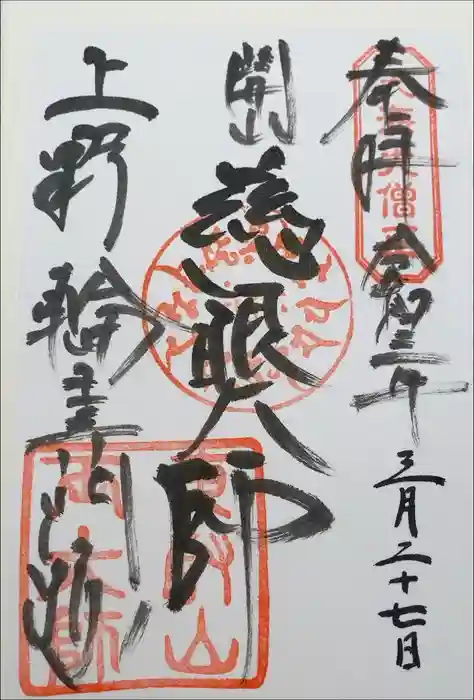 奉拝 令和三年三月二十七日
開山
慈眼大師
上野輪王寺門跡